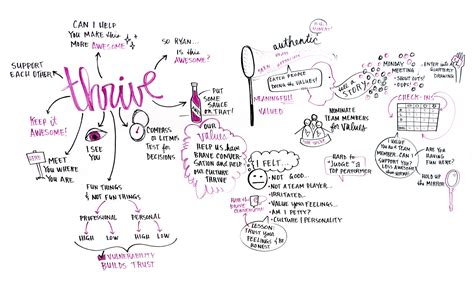 CAN I HELP
YOU MAKE this
MORE AWESOME?
SO RYAN...
IS this
AWESOME?
SUPPORT
EACH OTHER
thrive
KEEP it
AWESOME!
MEET
YOU WHERE
YOU ARE
I SEE
YOU
COMPASS
OR LITMUS
TEST for
DECISIONS
PUT
SOME
SAUCE
ON THAT!
OUR
VALUES
HELP US HAVE
BRAVE CONVER-
SATION AND HELP
our CULTURE
THRIVE
FUN THINGS
& NOT FUN THINGS
PROFESSIONAL PERSONAL
HIGH LOW HIGH LOW
VULNERABILITY
BUILDS TRUST
authentic
CATCH PEOPLE
DOING the VALUES!
MEANINGFUL
VALUED
STORY
NOMINATE
TEAM MEMBERS
for Values
MONDAY
MEETING
SHOUT OUTS!
CHECK-IN
VALUE
HOLD UP
the MIRROR
ARE YOU
HAVING
FUN HERE?
HARD to
"JUDGE" a
TOP PERFORMER
I FELT...
NOT GOOD...
NOT A TEAM PLAYER...
IRRITATED...
VALUE your FEELINGS...
AM I PETTY?
CULTURE / PERSONALITY
LESSON:
TRUST your
FEELINGS & BE
HONEST